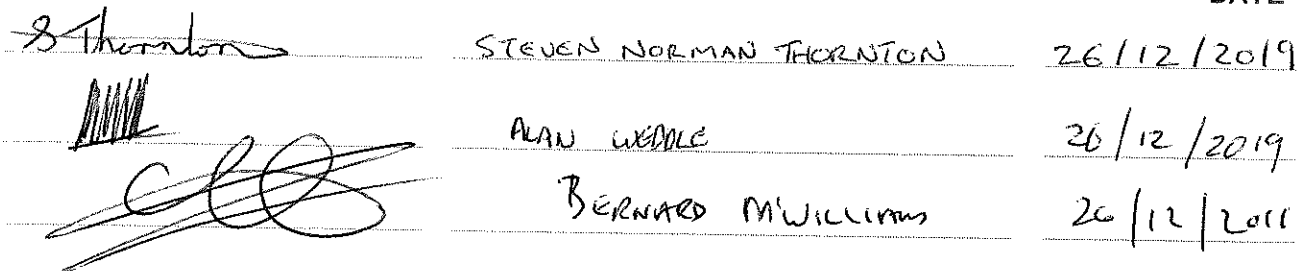 DATE
S Thornton STEVEN NORMAN THORNTON 26/12/2019
ALAN WEDDLE 26/12/2019
BERNARD M'WILLIAMS 26/12/2011